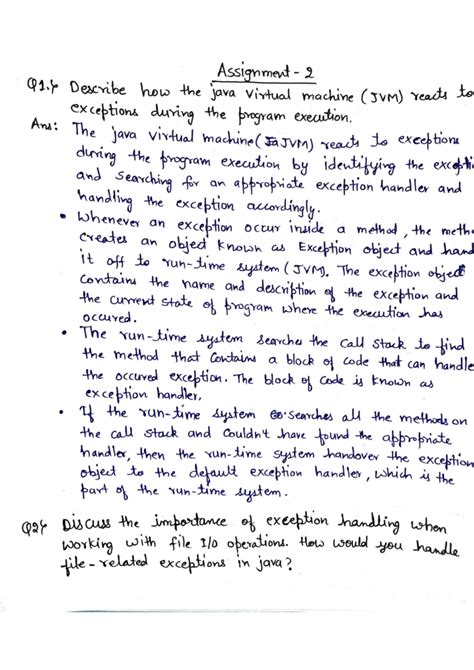 Assignment - 2
Q1. Describe how the java virtual machine (JVM) reacts to
exceptions during the program execution.
Ans: The java virtual machine (JVM) reacts to exceptions
during the program execution by identifying the excepti
and searching for an appropriate exception handler and
handling the exception accordingly.
• Whenever an exception occur inside a method, the meth
creates an object known as Exception object and hand
it off to run-time system (JVM). The exception object
contains the name and description of the exception and
the current state of program where the execution has
occured.
• The run-time system searches the call stack to find
the method that contains a block of code that can handle
the occured exception. The block of code is known as
exception handler.
• If the run-time system searches all the methods on
the call stack and couldn't have found the appropriate
handler, then the run-time system handover the exception
object to the default exception handler, which is the
part of the run-time system.
Q2 Discuss the importance of exception handling when
working with file I/O operations. How would you handle
file-related exceptions in java?